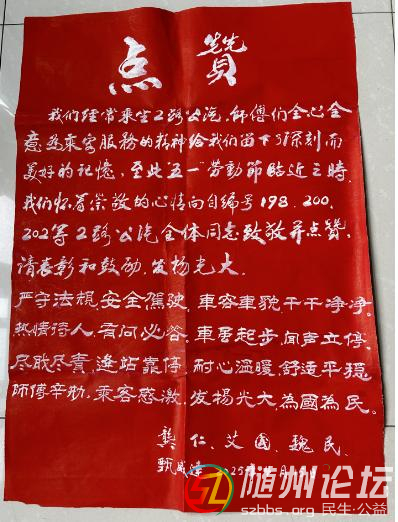 点赞
我们经常乘坐2路公汽,师傅们全心全
意为乘客服务的精神给我们留下了深刻而
美好的记忆,至此"五一"劳動節临近之時,
我们怀着崇敬的心情向自编号198、200、
202等2路公汽全体同志致敬并点赞,
请表彰和鼓励,发扬光大。
严守法規,安全駕駛,車容車貌,干干净净。
热情待人,有问必答。車居起步,闻声立停。
尽職尽責,進站靠停,耐心溫暖,舒适平穩
師傅辛勤,乘客感激,发揚光大,為國為民。
龔仁、艾國、魏民、
甄
随州论坛
szbbs.org 民生·公益